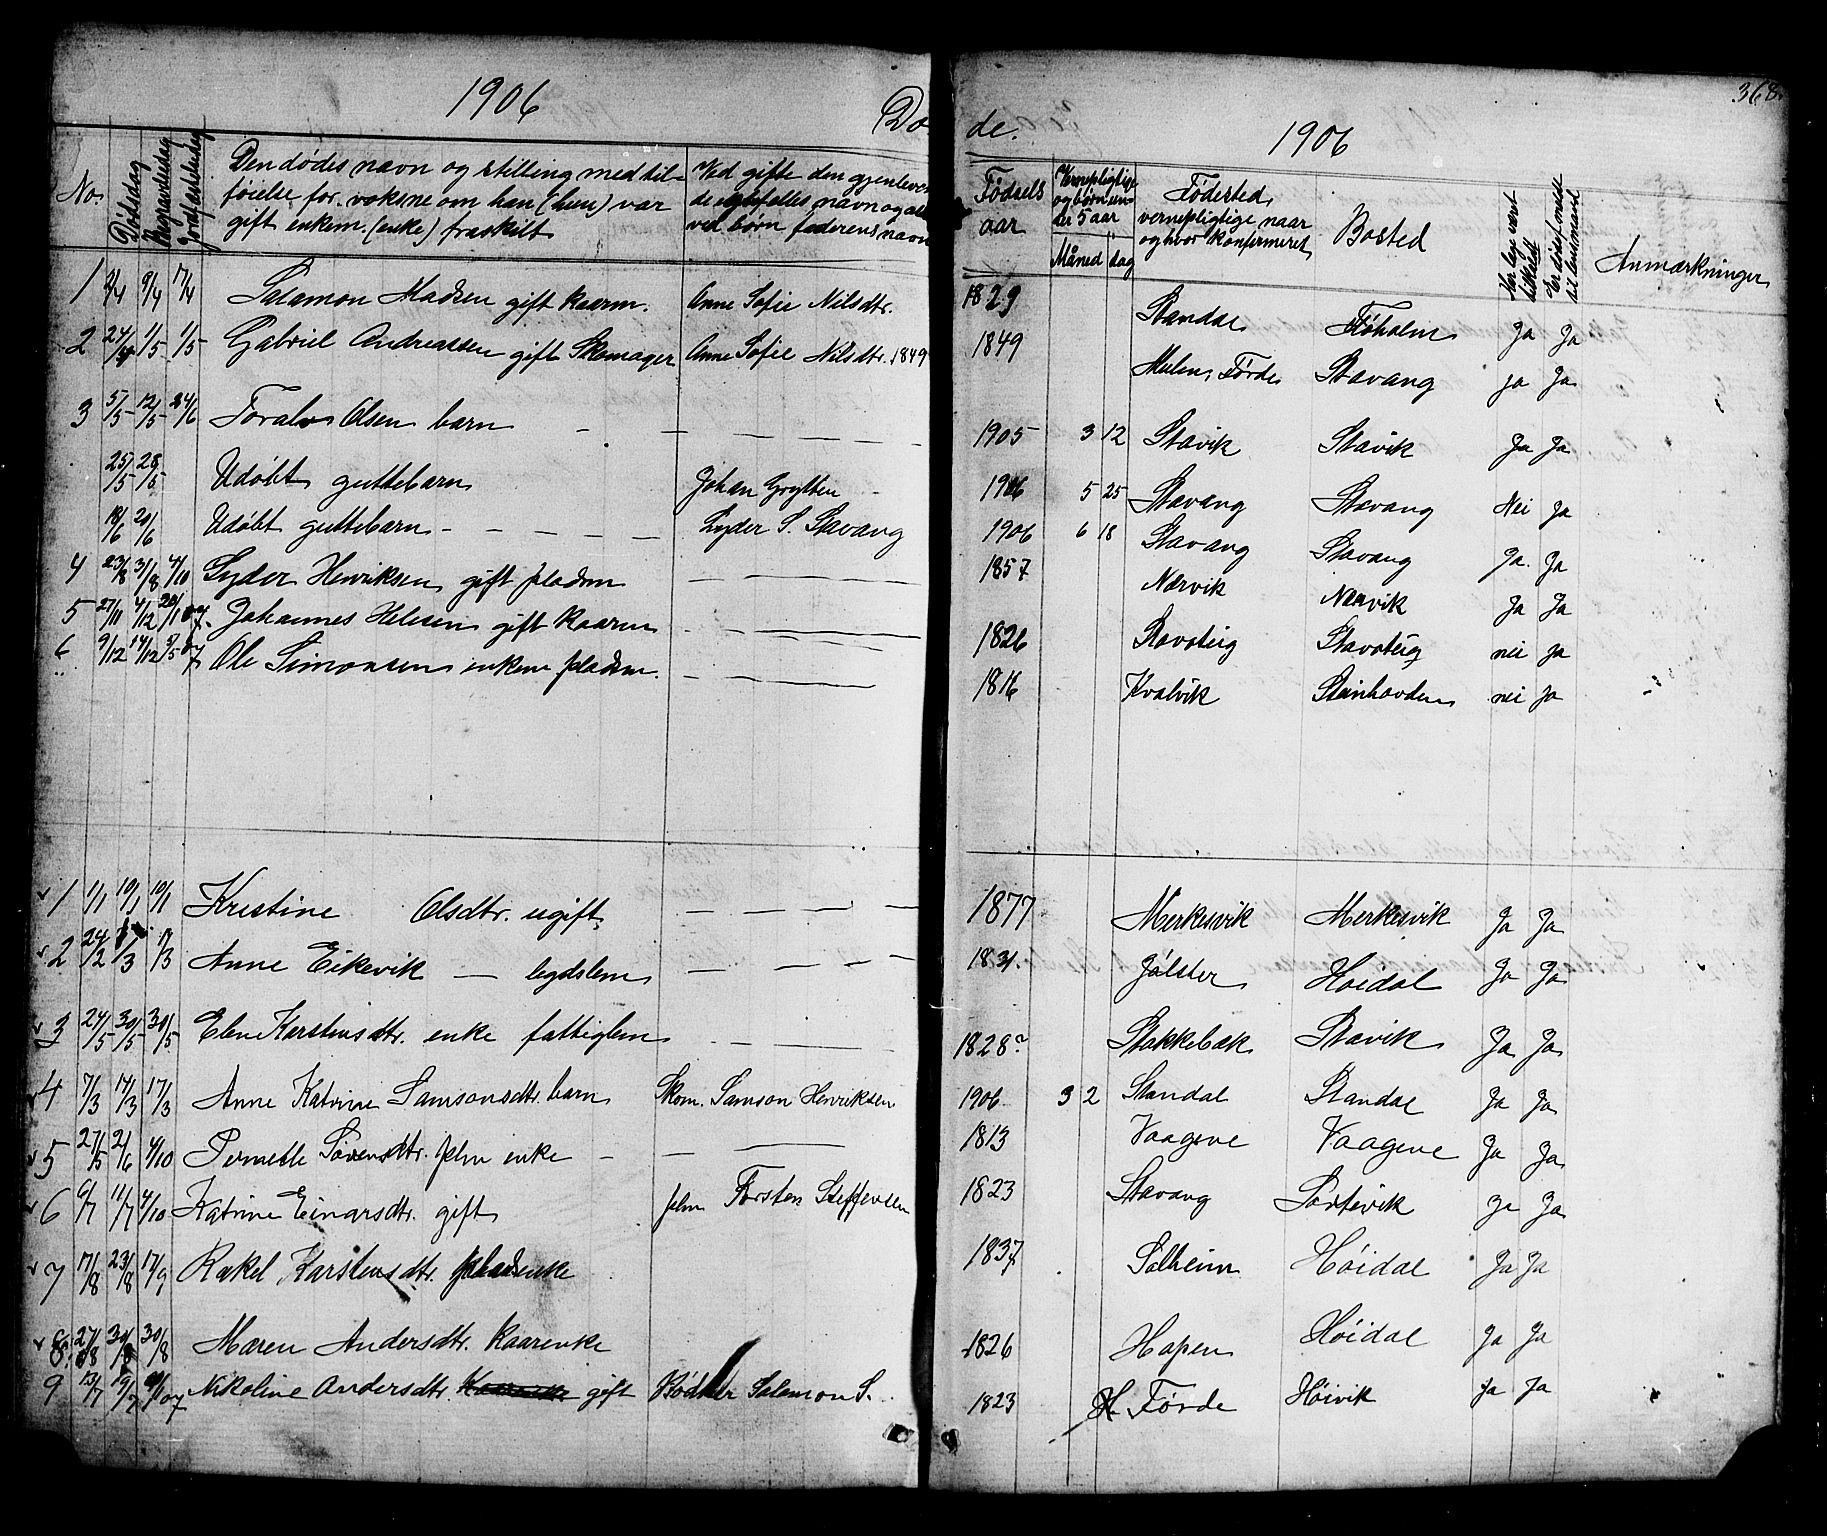 1906
Dø
No
Dødsdag
Begravelsesdag
Jordfæstelsedag
Den dødes navn og stilling med til-
føielse for voksne om han (hun) var
gift enkem. (enke) fraskilt
Ved gifte den gjenleven
de egtefelles navn og al
ved børn faderens navn
1 2/4 9/4 17/4 Salamon Madsen gift kaarm. Anne Sofie Nilsdtr.
2 24/4 1/5 1/5 Gabriel Andreassen gift Skomager Anne Sofie Nilsdtr. 1849
3 5/5 12/5 24/6 Toralv Olsen barn
25/5 28/5 Udøbt guttebarn Johan Grytten
18/6 20/6 Udøbt guttebarn Lyder S. Stavang
4 23/8 31/8 4/10 Lyder Henriksen gift pladsm
5 27/11 4/12 20/1 07. Johannes Helesen gift kaarm
6 9/12 14/12 9/5 07 Ole Simonsen enkem pladsm.
1 1/1 10/1 10/1 Kristine Olsdtr. ugift
2 24/2 1/3 17/3 Anne Eikevik — legdslem
3 24/5 30/5 30/5 Elen Karstensdtr. enke fattiglem
4 7/3 17/3 17/3 Anne Katrine Samsonsdtr. barn Skom. Samson Henriksen
5 27/5 2/6 4/10 Pernelle Sørensdtr. plm enke
6 6/7 11/7 4/10 Katrine Einarsdtr. gift plm Torsten Steffensen
7 17/8 23/8 17/9 Rakel Karstensdtr. pladsenke
8 27/8 30/8 30/8 Maren Andersdtr. kaarenke
9 13/7 19/7 07 Nikoline Andersdtr. gift Bødker Salamon S.
368.
de.
1906
Fødsels
aar
Vernepligtige
og børn un-
der 5 aar
Måned dag
Fødested,
vernepligtige naar
og hvor konfirmeret
Bosted
Har læge vært
tilkaldt
Er dødsf. meldt
til lensmand
Anmærkninger
1829 Standal Ja Ja
1849 Mulen, Førde Stavang ja Ja
1905 3 12 Stavik Stavik Ja Ja
1906 5 25 Stavang Stavang Nei Ja
1906 6 18 Stavang Stavang Ja. Ja
1857 Nærvik Nærvik Ja Ja
1826 Stavsteig nei Ja
1816 Kvalvik Steinhovden nei Ja
1877 Merkesvik Merkesvik Ja Ja
1831. Jølster Høidal Ja Ja
1828? Stokkebæk Stavik Ja Ja
1906 3 2 Standal Standal Ja Ja
1813 Vaagene Vaagene Ja Ja
1823 Stavang Sortevik Ja Ja
1837 Solheim Høidal Ja Ja
1826 Hopen Høidal Ja Ja
1823 Førde Høivik Ja Ja